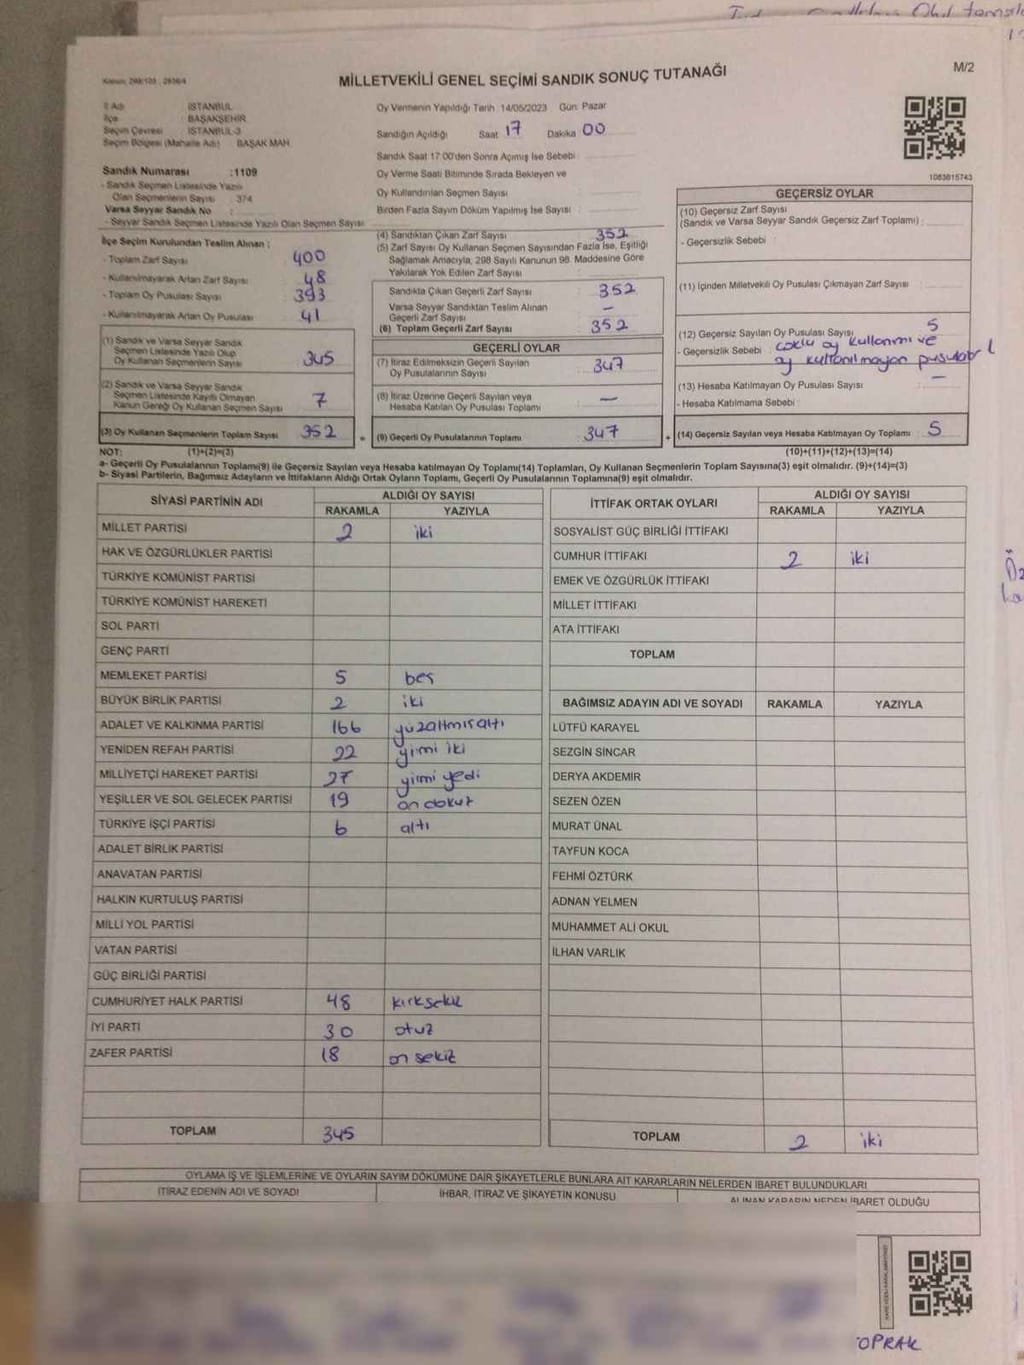 M/2
MİLLETVEKİLİ GENEL SEÇİMİ SANDIK SONUÇ TUTANAĞI
İl Adı : İSTANBUL
İlçe : BAŞAKŞEHİR
Seçim Çevresi : İSTANBUL-3
Seçim Bölgesi (Mahalle Adı) : BAŞAK MAH.
Sandık Numarası :1109
- Sandık Seçmen Listesinde Yazılı
Olan Seçmenlerin Sayısı : 374
Varsa Seyyar Sandık No :
- Seyyar Sandık Seçmen Listesinde Yazılı Olan Seçmen Sayısı :
Oy Vermenin Yapıldığı Tarih :14/05/2023 Gün: Pazar
Sandığın Açıldığı Saat 17 Dakika 00
Sandık Saat 17:00'den Sonra Açımış İse Sebebi :
Oy Verme Saati Bitiminde Sırada Bekleyen ve
Oy Kullandırılan Seçmen Sayısı :
Birden Fazla Sayım Döküm Yapılmış İse Sayısı :
1083615743
İlçe Seçim Kurulundan Teslim Alınan :
- Toplam Zarf Sayısı : 400
- Kullanılmayarak Artan Zarf Sayısı : 48
- Toplam Oy Pusulası Sayısı : 393
- Kullanılmayarak Artan Oy Pusulası : 41
(1) Sandık ve Varsa Seyyar Sandık
Seçmen Listesinde Yazılı Olup
Oy Kullanan Seçmenlerin Sayısı : 345
(2) Sandık ve Varsa Seyyar Sandık
Seçmen Listesinde Kayıtlı Olmayan
Kanun Gereği Oy Kullanan Seçmen Sayısı : 7
(3) Oy Kullanan Seçmenlerin Toplam Sayısı : 352
(4) Sandıktan Çıkan Zarf Sayısı : 352
(5) Zarf Sayısı Oy Kullanan Seçmen Sayısından Fazla İse, Eşitliği
Sağlamak Amacıyla, 298 Sayılı Kanunun 98. Maddesine Göre
Yakılarak Yok Edilen Zarf Sayısı :
Sandıkta Çıkan Geçerli Zarf Sayısı : 352
Varsa Seyyar Sandıktan Teslim Alınan
Geçerli Zarf Sayısı : —
(6) Toplam Geçerli Zarf Sayısı : 352
GEÇERLİ OYLAR
(7) İtiraz Edilmeksizin Geçerli Sayılan
Oy Pusulalarının Sayısı : 347
(8) İtiraz Üzerine Geçerli Sayılan veya
Hesaba Katılan Oy Pusulası Toplamı : —
= (9) Geçerli Oy Pusulalarının Toplamı : 347
GEÇERSİZ OYLAR
(10) Geçersiz Zarf Sayısı
(Sandık ve Varsa Seyyar Sandık Geçersiz Zarf Toplamı) :
- Geçersizlik Sebebi :
(11) İçinden Milletvekili Oy Pusulası Çıkmayan Zarf Sayısı :
(12) Geçersiz Sayılan Oy Pusulası Sayısı : 5
- Geçersizlik Sebebi : çoklu oy kullanımı ve
oy kullanılmayan pusulalar
(13) Hesaba Katılmayan Oy Pusulası Sayısı : —
- Hesaba Katılmama Sebebi :
+ (14) Geçersiz Sayılan veya Hesaba Katılmayan Oy Toplamı : 5
NOT: (1)+(2)=(3) (10)+(11)+(12)+(13)=(14)
a- Geçerli Oy Pusulalarının Toplamı(9) ile Geçersiz Sayılan veya Hesaba katılmayan Oy Toplamı(14) Toplamları, Oy Kullanan Seçmenlerin Toplam Sayısına(3) eşit olmalıdır. (9)+(14)=(3)
b- Siyasi Partilerin, Bağımsız Adayların ve İttifakların Aldığı Ortak Oyların Toplamı, Geçerli Oy Pusulalarının Toplamına(9) eşit olmalıdır.
SİYASİ PARTİNİN ADI ALDIĞI OY SAYISI
RAKAMLA YAZIYLA
MİLLET PARTİSİ 2 iki
HAK VE ÖZGÜRLÜKLER PARTİSİ
TÜRKİYE KOMÜNİST PARTİSİ
TÜRKİYE KOMÜNİST HAREKETİ
SOL PARTİ
GENÇ PARTİ
MEMLEKET PARTİSİ 5 beş
BÜYÜK BİRLİK PARTİSİ 2 iki
ADALET VE KALKINMA PARTİSİ 166 yüzaltmışaltı
YENİDEN REFAH PARTİSİ 22 yirmi iki
MİLLİYETÇİ HAREKET PARTİSİ 27 yirmi yedi
YEŞİLLER VE SOL GELECEK PARTİSİ 19 on dokuz
TÜRKİYE İŞÇİ PARTİSİ 6 altı
ADALET BİRLİK PARTİSİ
ANAVATAN PARTİSİ
HALKIN KURTULUŞ PARTİSİ
MİLLİ YOL PARTİSİ
VATAN PARTİSİ
GÜÇ BİRLİĞİ PARTİSİ
CUMHURİYET HALK PARTİSİ 48 kırksekiz
İYİ PARTİ 30 otuz
ZAFER PARTİSİ 18 on sekiz
TOPLAM 345
İTTİFAK ORTAK OYLARI ALDIĞI OY SAYISI
RAKAMLA YAZIYLA
SOSYALİST GÜÇ BİRLİĞİ İTTİFAKI
CUMHUR İTTİFAKI 2 iki
EMEK VE ÖZGÜRLÜK İTTİFAKI
MİLLET İTTİFAKI
ATA İTTİFAKI
TOPLAM
BAĞIMSIZ ADAYIN ADI VE SOYADI RAKAMLA YAZIYLA
LÜTFÜ KARAYEL
SEZGİN SİNCAR
DERYA AKDEMİR
SEZEN ÖZEN
MURAT ÜNAL
TAYFUN KOCA
FEHMİ ÖZTÜRK
ADNAN YELMEN
MUHAMMET ALİ OKUL
İLHAN VARLIK
TOPLAM 2 iki
OYLAMA İŞ VE İŞLEMLERİNE VE OYLARIN SAYIM DÖKÜMÜNE DAİR ŞİKAYETLERLE BUNLARA AİT KARARLARIN NELERDEN İBARET BULUNDUKLARI
İTİRAZ EDENİN ADI VE SOYADI İHBAR, İTİRAZ VE ŞİKAYETİN KONUSU ALINAN KARARIN NEDEN İBARET OLDUĞU
TOPRAK